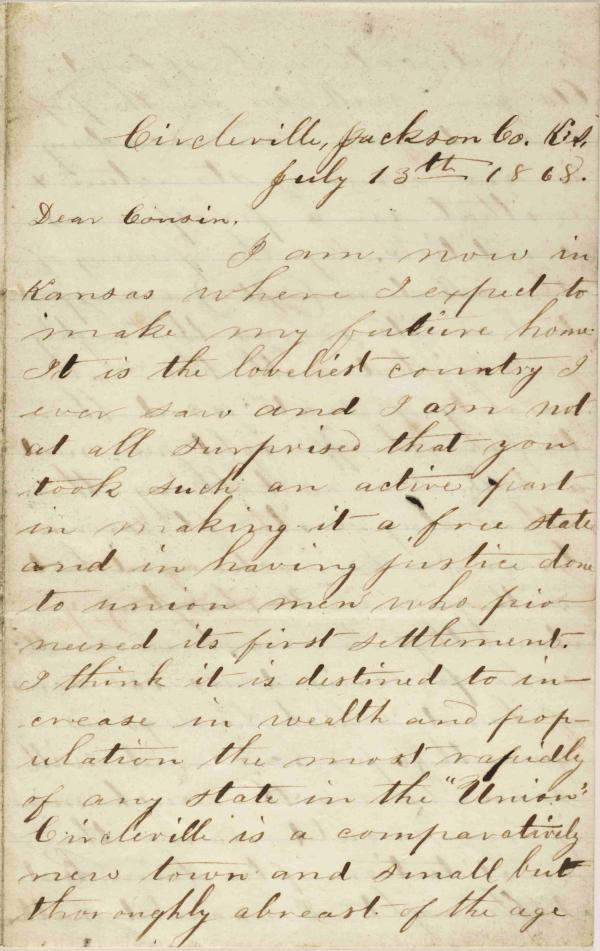 Circleville, Jackson Co. Ks,
July 13th 1868.
Dear Cousin.
I am now in
Kansas where I expect to
make my future home.
It is the loveliest country I
ever saw and I am not
at all surprised that you
took such an active part
in making it a free state
and in having justice done
to union men who pio-
neered its first settlement.
I think it is destined to in-
crease in wealth and pop-
ulation the most rapidly
of any state in the "Union".
Circleville is a comparatively
new town and small but
thoroughly abreast of the age